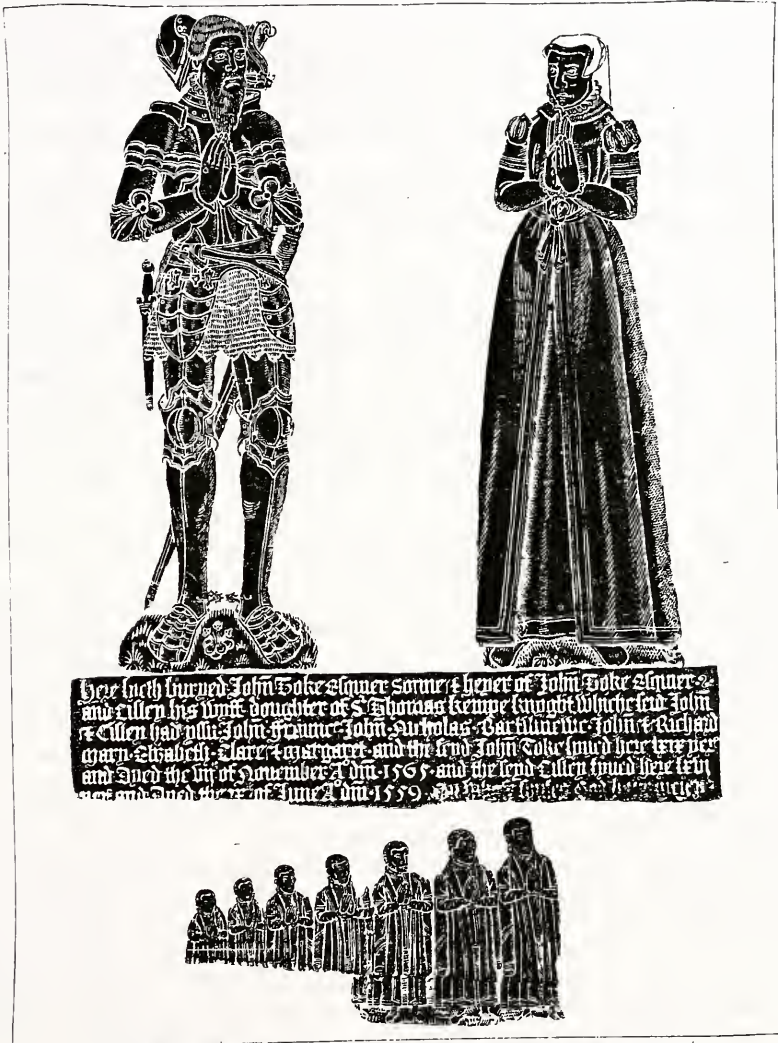 here lieth buryed John Toke Esquier sonne & heyer of John Toke Esquier &
and Cisley his wyff doughter of Sr Thomas Kempe knyght whiche seid John
& Cisley had yssu John John Nicholas John & Richard
mary Elizabeth Clare & margaret and the seyd John Toke lyued here lxix yer
and Dyed the of November A dm 1565 and the seyd Cisley lyued here lxvi
and Dyed the of June A dm 1559